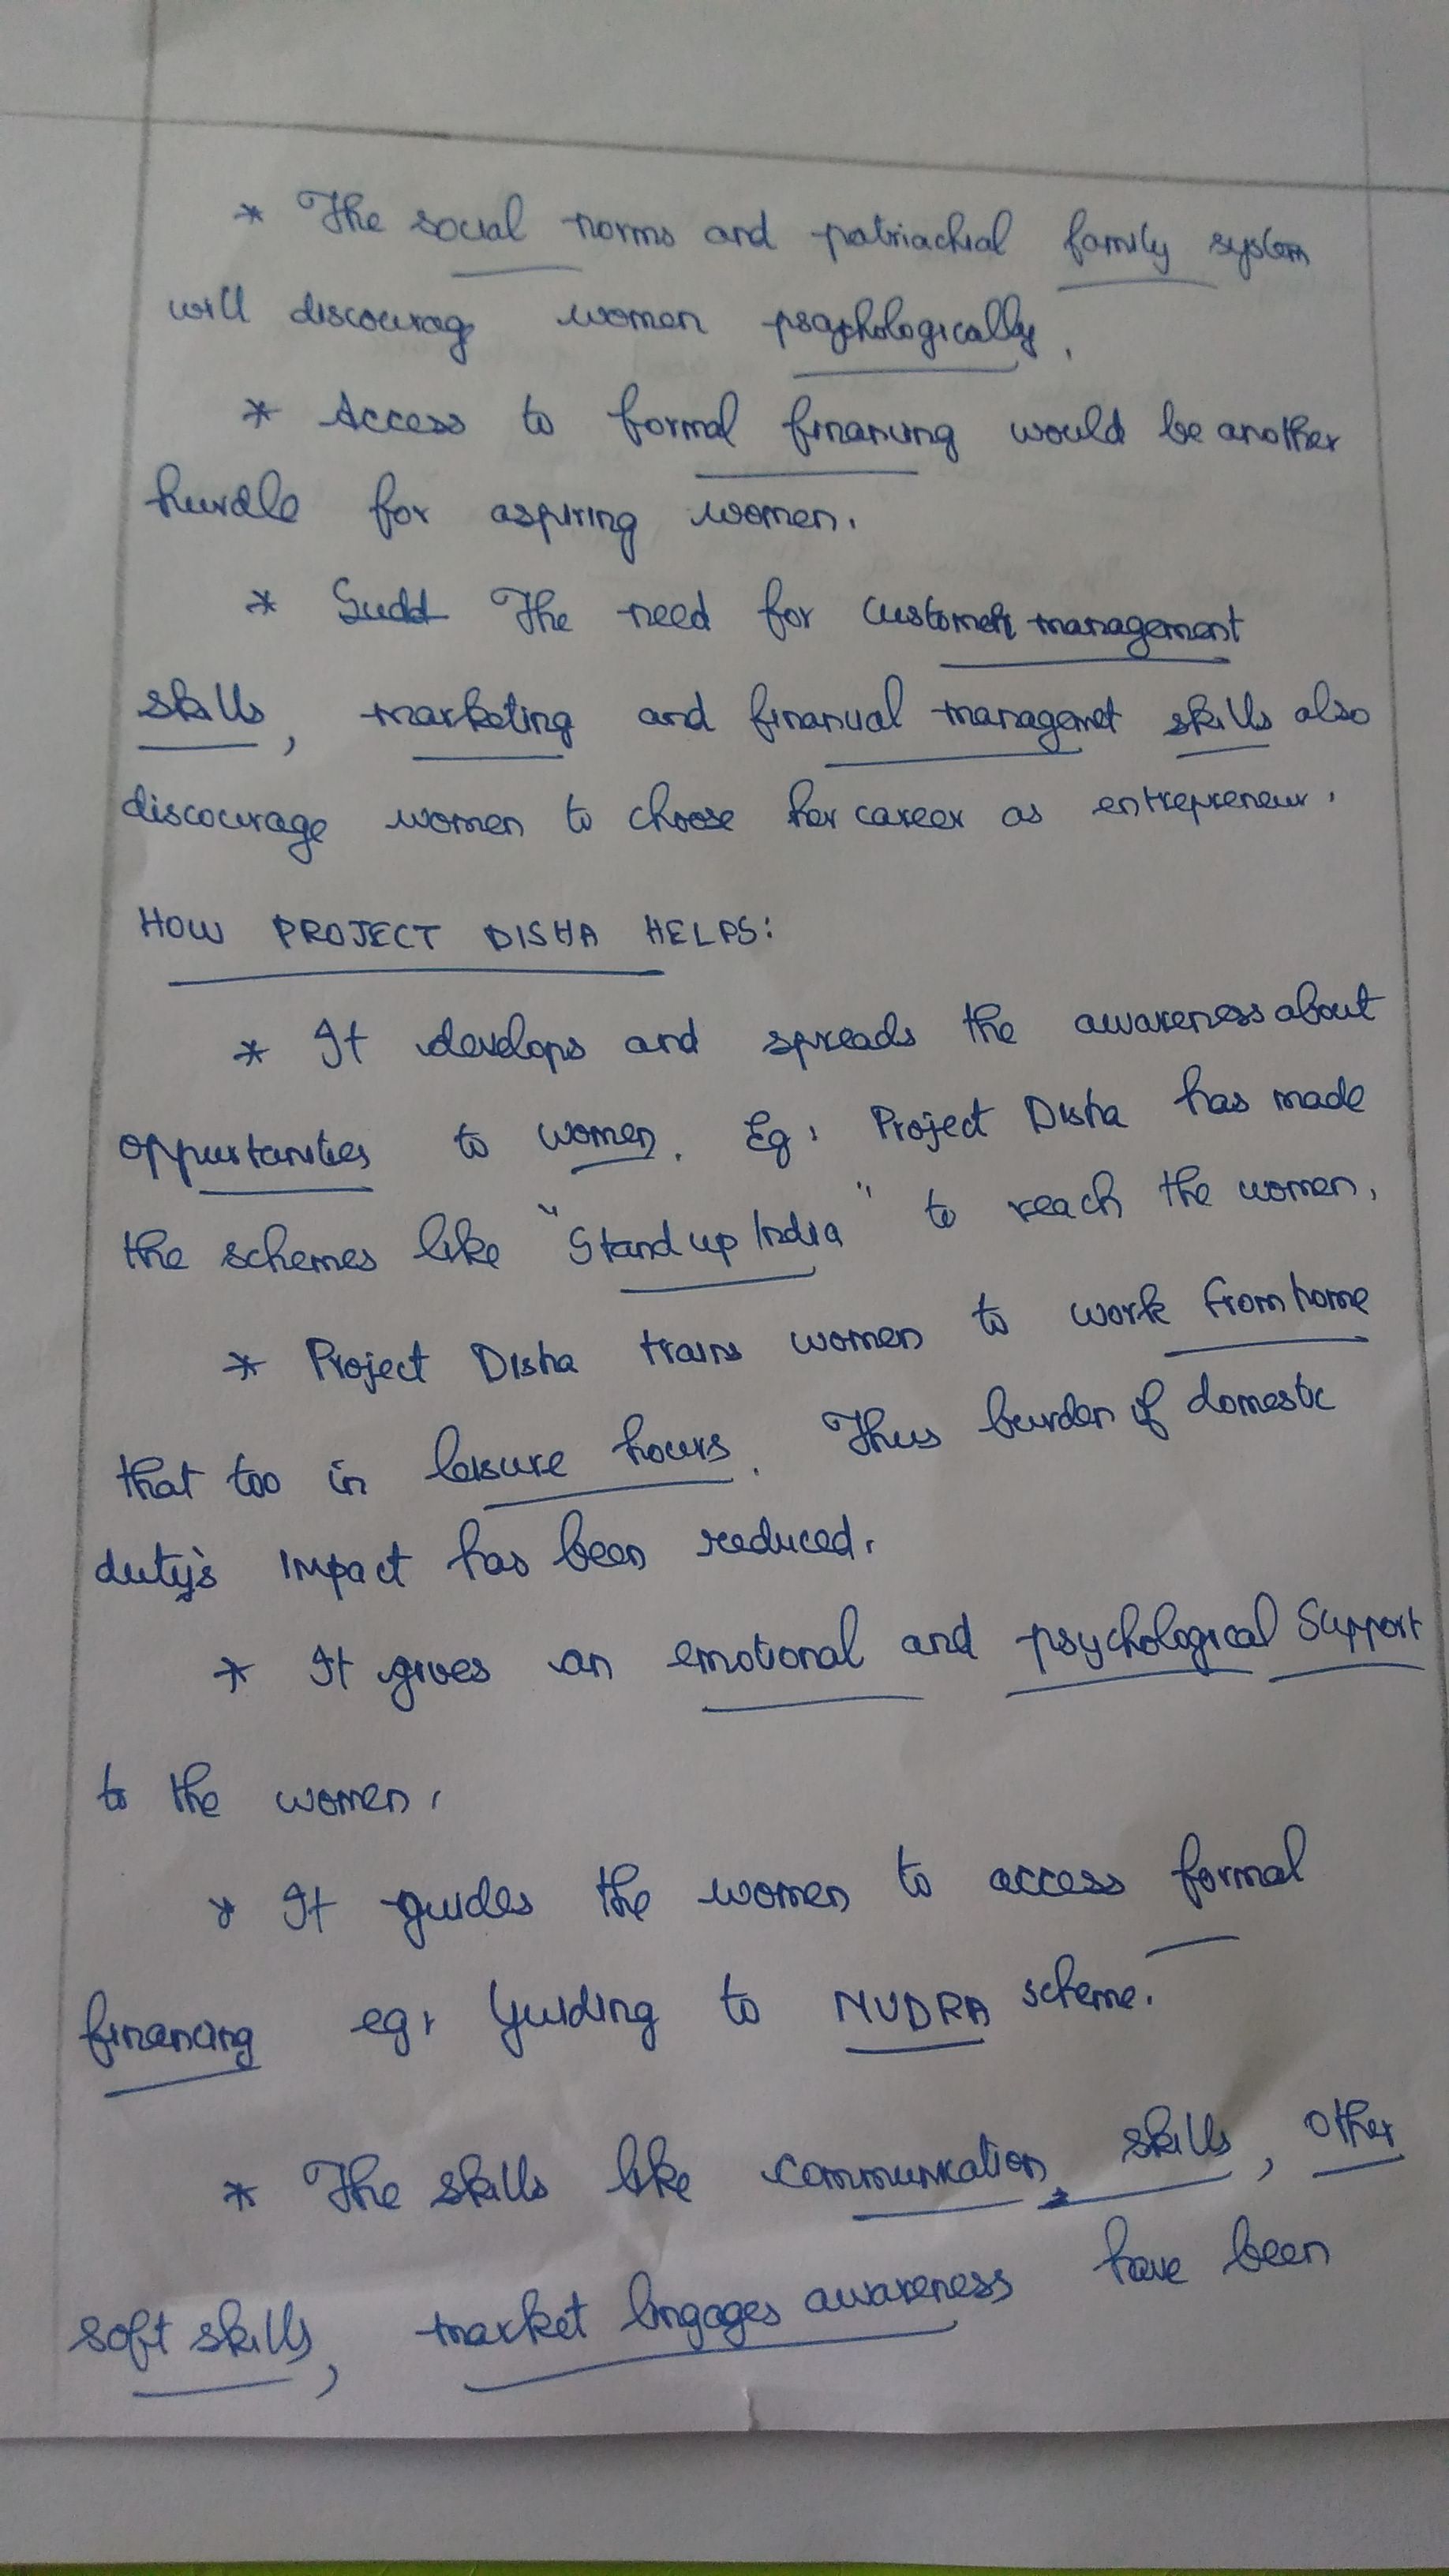 * The social norms and patriachial family system
will discourag women psychologically.
* Access to formal financing would be another
hurdle for aspiring women.
* Sudd The need for customer management
skills, marketing and financial managemet skills also
discourage women to choose her career as entrepreneur.
HOW PROJECT DISHA HELPS:
* It develops and spreads the awareness about
oppurtanities to women. Eg: Project Disha has made
the schemes like "Stand up India" to reach the women.
* Project Disha trains women to work from home
that too in leisure hours. Thus burden of domestic
duty's impact has been reduced.
* It gives an emotional and psychological support
to the women.
* It guides the women to access formal
financing eg: Guiding to MUDRA scheme.
* The skills like communication skills, other
soft skills, market lingages awareness have been